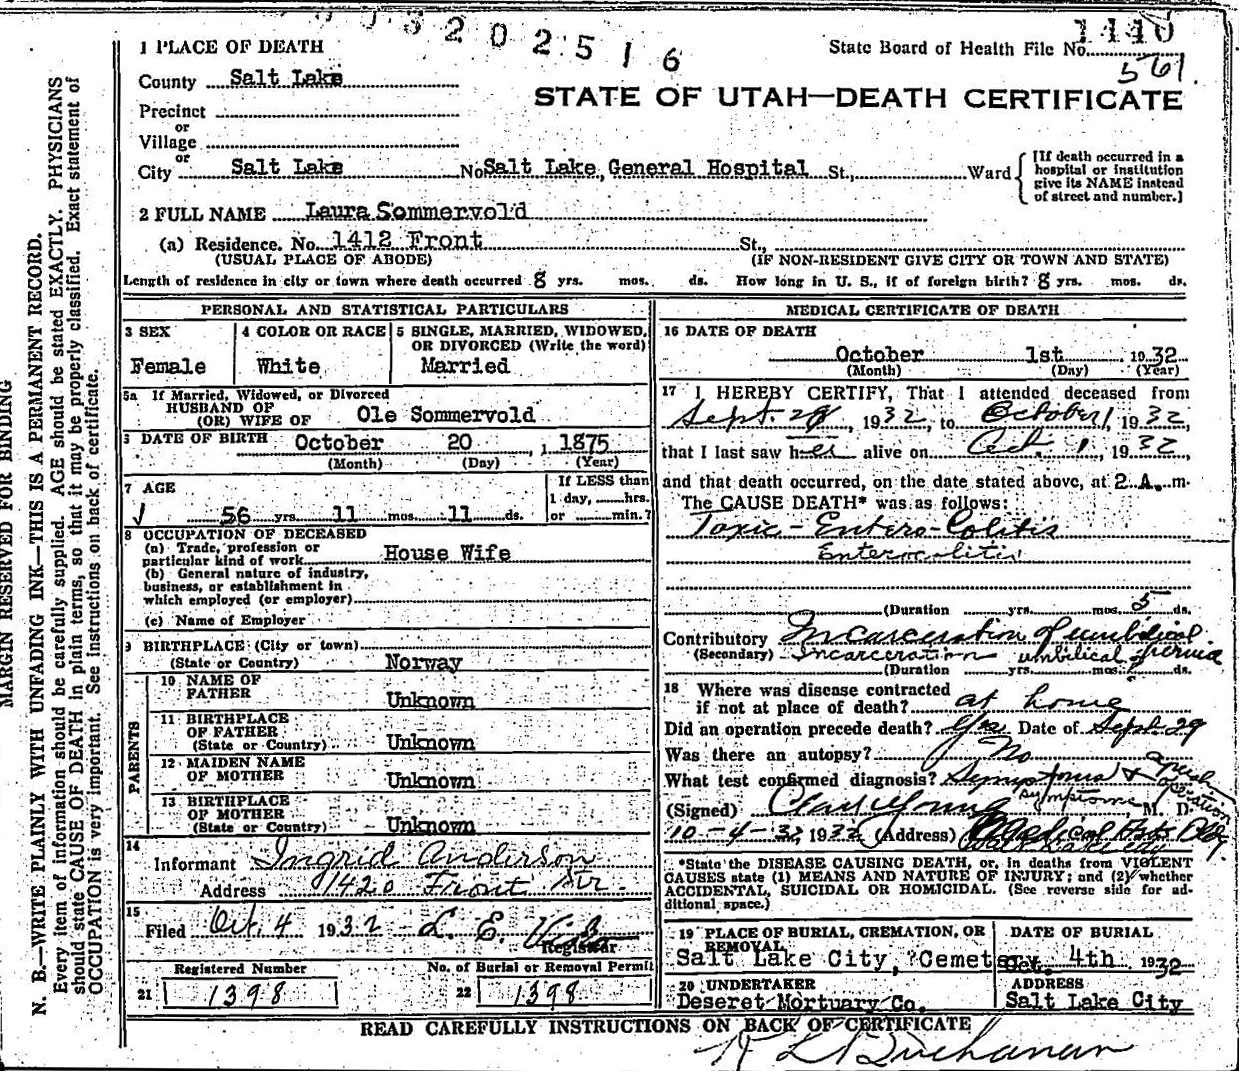 3202516
1 PLACE OF DEATH
State Board of Health File No. 1440
561
County Salt Lake
STATE OF UTAH—DEATH CERTIFICATE
Precinct
or
Village
or
City Salt Lake No Salt Lake General Hospital St., Ward
[If death occurred in a hospital or institution give its NAME instead of street and number.]
2 FULL NAME Laura Sommervold
(a) Residence. No. 1412 Front St.,
(USUAL PLACE OF ABODE) (IF NON-RESIDENT GIVE CITY OR TOWN AND STATE)
Length of residence in city or town where death occurred 8 yrs. mos. ds. How long in U. S., if of foreign birth? 8 yrs. mos. ds.
PERSONAL AND STATISTICAL PARTICULARS
3 SEX
Female
4 COLOR OR RACE
White
5 SINGLE, MARRIED, WIDOWED,
OR DIVORCED (Write the word)
Married
5a If Married, Widowed, or Divorced
HUSBAND OF
(OR) WIFE OF Ole Sommervold
6 DATE OF BIRTH October 20, 1875
(Month) (Day) (Year)
7 AGE
56 yrs 11 mos 11 ds.
If LESS than
1 day, hrs.
or min.?
8 OCCUPATION OF DECEASED
(a) Trade, profession or
particular kind of work House Wife
(b) General nature of industry,
business, or establishment in
which employed (or employer)
(c) Name of Employer
9 BIRTHPLACE (City or town)
(State or Country) Norway
PARENTS
10 NAME OF
FATHER Unknown
11 BIRTHPLACE
OF FATHER
(State or Country) Unknown
12 MAIDEN NAME
OF MOTHER Unknown
13 BIRTHPLACE
OF MOTHER
(State or Country) Unknown
14
Informant Ingrid Anderson
Address 1420 Front Str.
15
Filed Oct. 4 1932 L. E.
Registrar
Registered Number
21 1398
No. of Burial or Removal Permit
22 1398
MEDICAL CERTIFICATE OF DEATH
16 DATE OF DEATH
October 1st 1932
(Month) (Day) (Year)
17 I HEREBY CERTIFY, That I attended deceased from
Sept. 29, 1932, to October 1, 1932,
that I last saw her alive on Oct. 1, 1932,
and that death occurred, on the date stated above, at 2 A. m.
The CAUSE DEATH* was as follows:
Toxic-Entero-Colitis
Enterocolitis
(Duration yrs. mos. 5 ds.
Contributory Incarceration of umbilical
(Secondary) Incarceration umbilical hernia
(Duration yrs. mos. ds.
18 Where was disease contracted
if not at place of death? at home
Did an operation precede death? Yes Date of Sept. 29
Was there an autopsy? No
What test confirmed diagnosis? Symptoms &
symptoms operation
(Signed) Young M. D.
10-4-32, 1932 (Address) Medical Arts Bldg.
*State the DISEASE CAUSING DEATH, or, in deaths from VIOLENT
CAUSES state (1) MEANS AND NATURE OF INJURY; and (2) whether
ACCIDENTAL, SUICIDAL OR HOMICIDAL. (See reverse side for ad-
ditional space.)
19 PLACE OF BURIAL, CREMATION, OR
REMOVAL
Salt Lake City, Cemetery
DATE OF BURIAL
Oct. 4th 1932
20 UNDERTAKER
Deseret Mortuary Co.
ADDRESS
Salt Lake City
READ CAREFULLY INSTRUCTIONS ON BACK OF CERTIFICATE
Buchanan
MARGIN RESERVED FOR BINDING
N. B.—WRITE PLAINLY WITH UNFADING INK—THIS IS A PERMANENT RECORD.
Every item of information should be carefully supplied. AGE should be stated EXACTLY. PHYSICIANS
should state CAUSE OF DEATH in plain terms, so that it may be properly classified. Exact statement of
OCCUPATION is very important. See instructions on back of certificate.